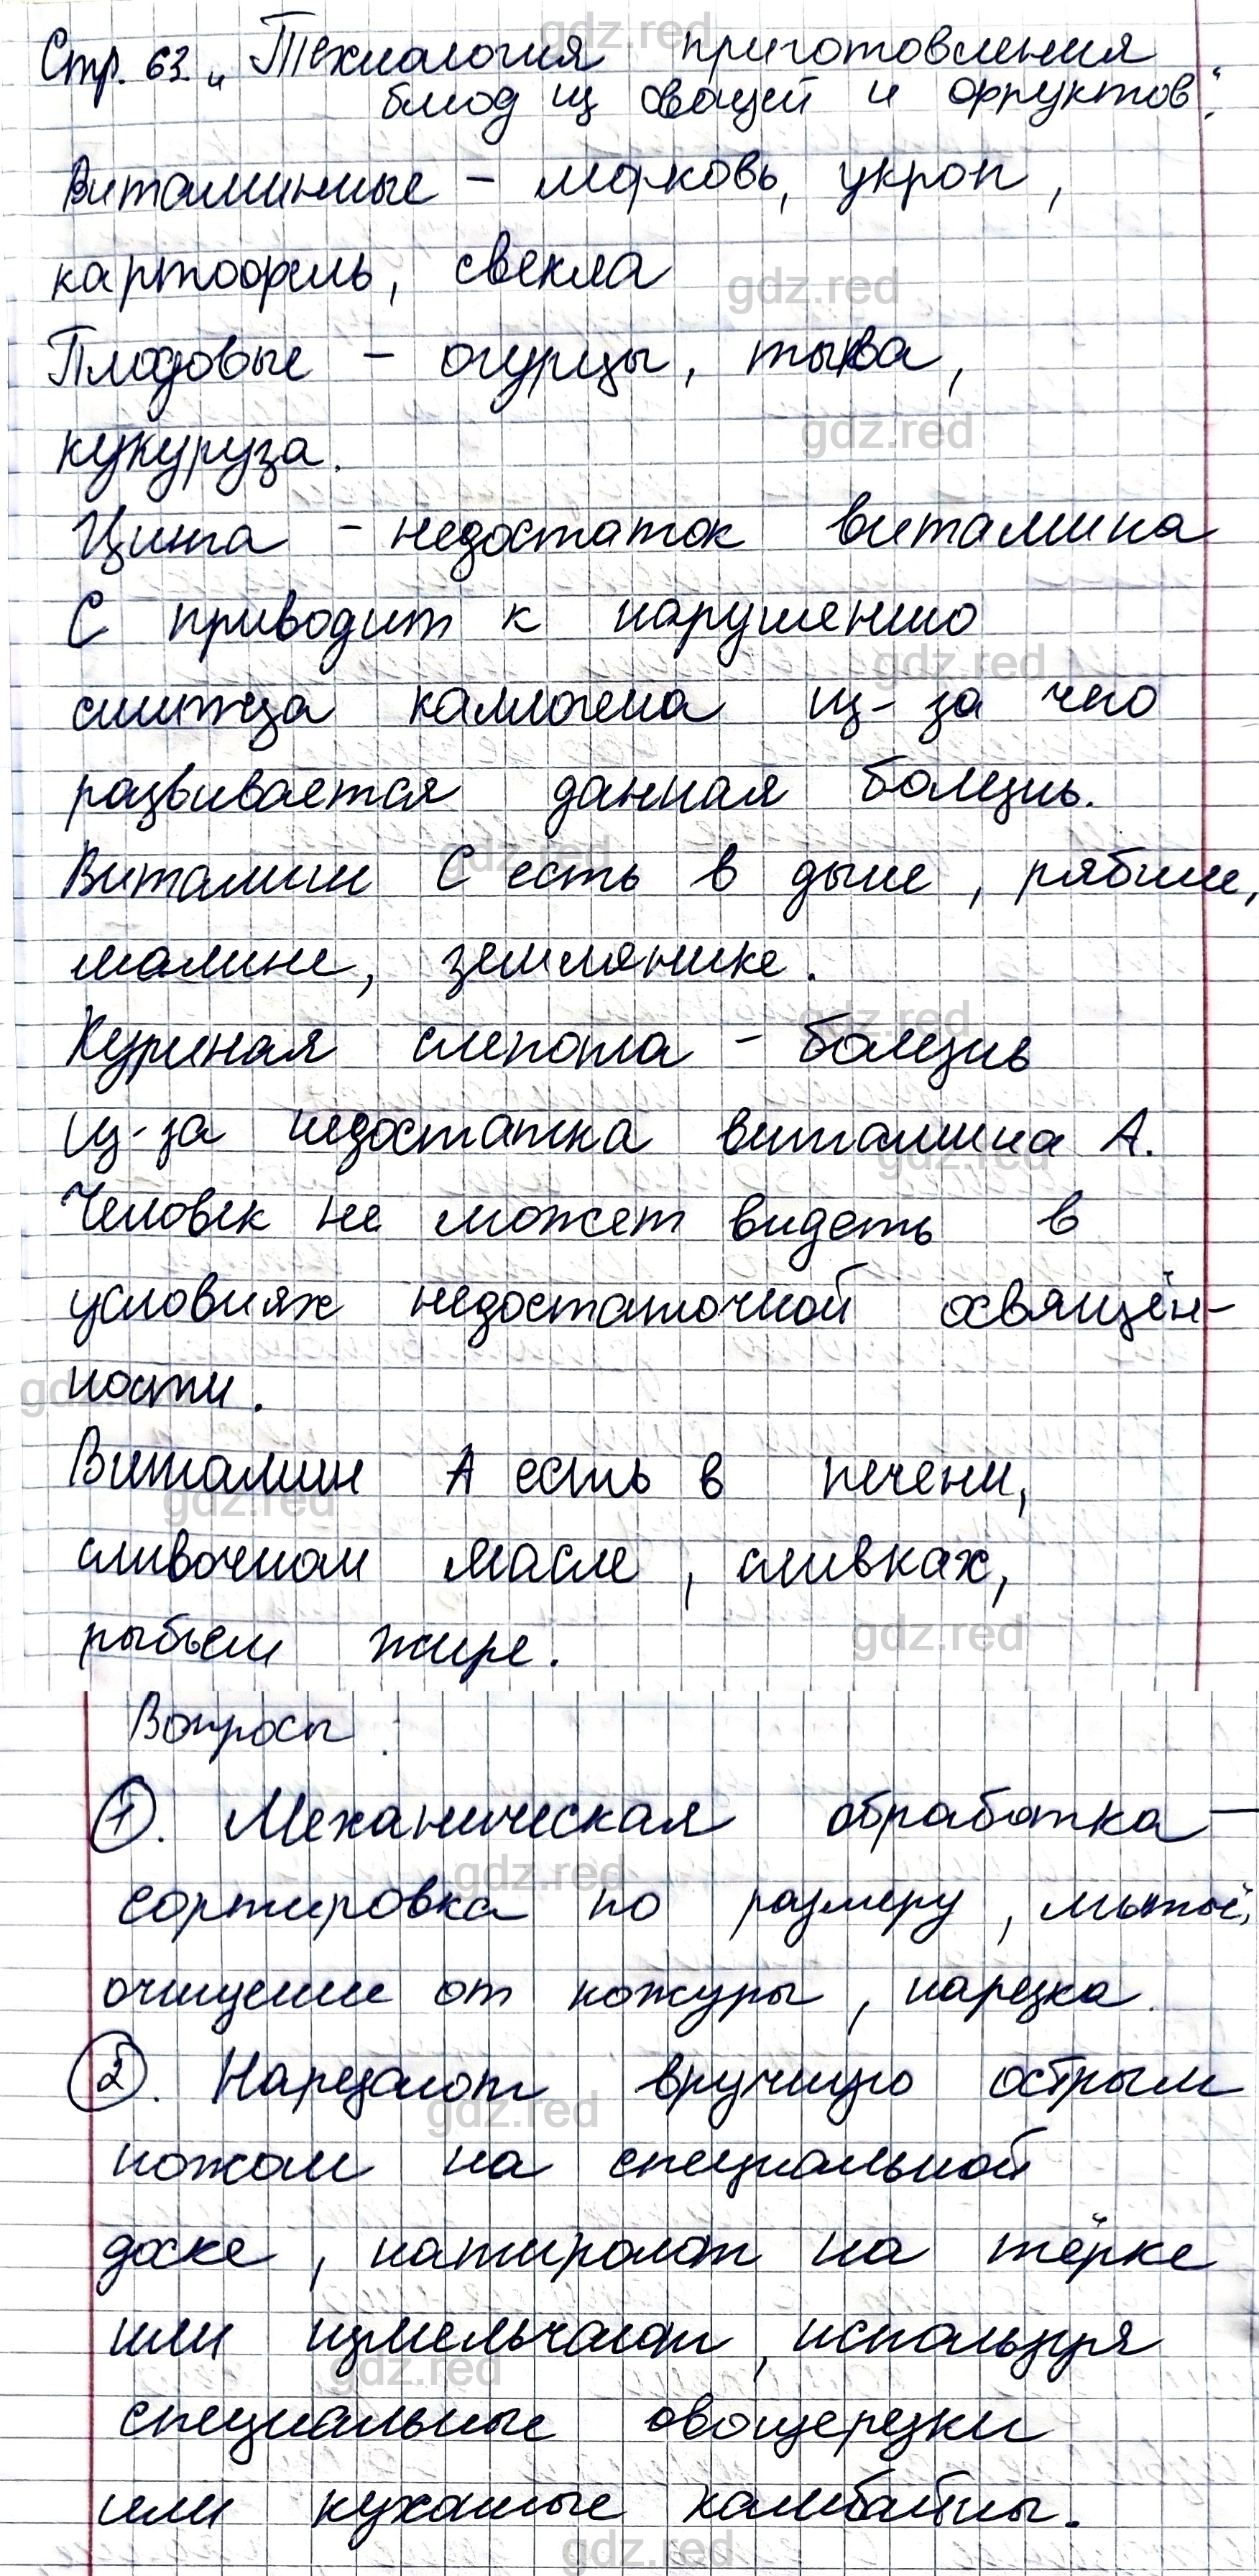 Стр. 63 „Технология приготовления
блюд из овощей и фруктов“.
Витаминные – морковь, укроп,
картофель, свекла
Плодовые – огурцы, тыква,
кукуруза.
Цинга – недостаток витамина
С приводит к нарушению
синтеза коллагена из-за чего
развивается данная болезнь.
Витамин С есть в дыне, рябине,
малине, землянике.
Куриная слепота – болезнь
из-за недостатка витамина А.
Человек не может видеть в
условиях недостаточной освящён-
ности.
Витамин А есть в печени,
сливочном масле, сливках,
рыбьем жире.
Вопросы:
1. Механическая обработка –
сортировка по размеру, мытьё,
очищение от кожуры, нарезка.
2. Нарезают вручную острым
ножом на специальной
доске, натирают на тёрке
или измельчают, используя
специальные овощерезки
или кухонные комбайны.
gdz.red
gdz.red
gdz.red
gdz.red
gdz.red
gdz.red
gdz.red
gdz.red
gdz.red
gdz.red
gdz.red
gdz.red
gdz.red
gdz.red